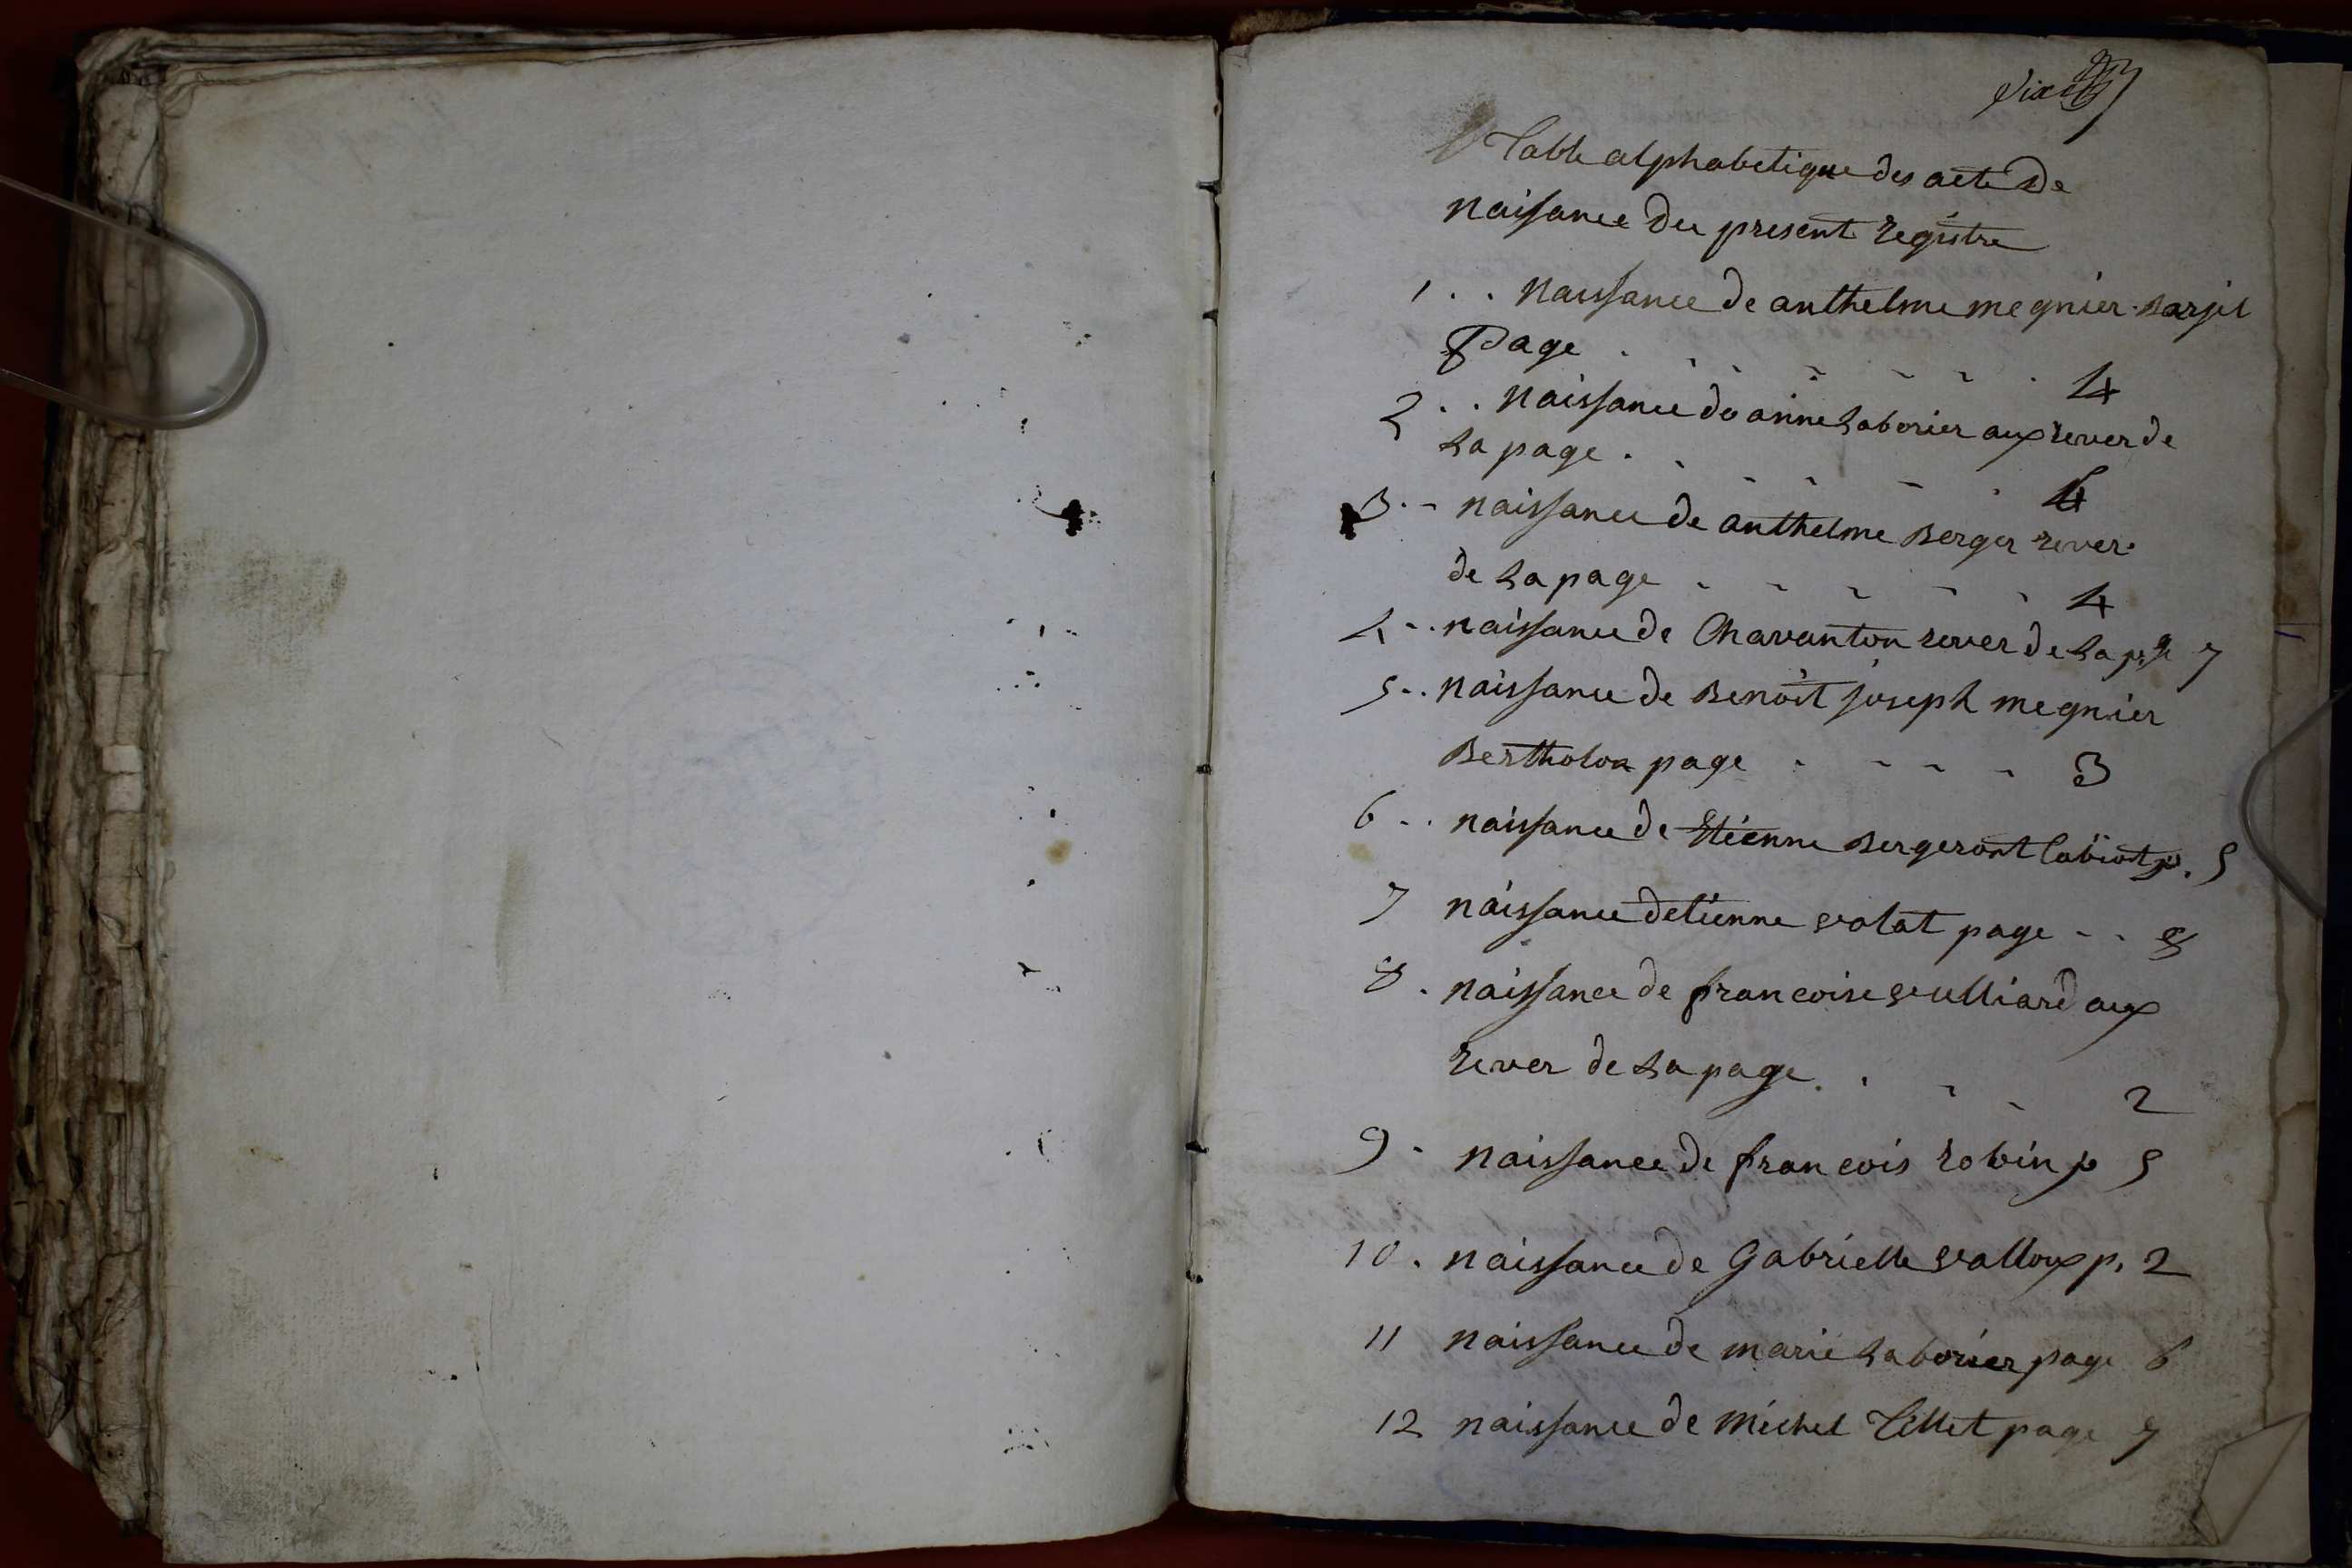 Six
Table alphabetique des acte de
naissance du present registre
1 . . naissance de anthelme megnier Barjil
Page . . . . . . . 4
2 . . naissance de anne Laborier aux rever de
La page . . . . . . 4
3 . - naissance de anthelme Berger rever
de La page . . . . . 4
4 - . . naissance de Chavanton rever de La pge 7
5 - . . naissance de Benoit joseph megnier
Bertholon page . - - - 3
6 - . . naissance de Etienne Bergeront p. 5
7 naissance detienne volat page - . . 8
8 . naissance de francoise vulliard aux
rever de La page . . - - 2
9 - naissance de francois robin p 5
10 . naissance de Gabrielle valloux p. 2
11 naissance de marie Laborier page 6
12 naissance de michel Tillet page 7